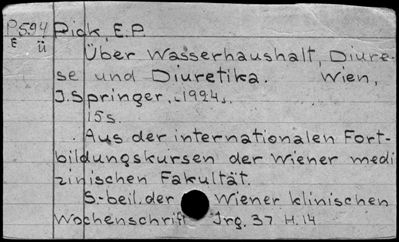 P594 Pick, E.P.
E ü
Über Wasserhaushalt, Diure-
se und Diuretika. Wien,
J. Springer, 1924.
15s.
Aus der internationalen Fort-
bildungskursen der Wiener medi
zinischen Fakultät.
S.-beil. der Wiener klinischen
Wochenschrift Jrg. 37 H. 14